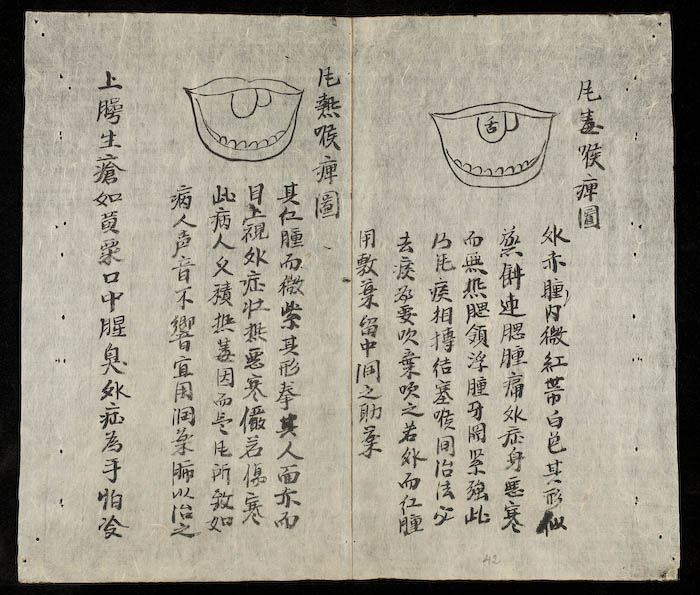 凮毒喉痺圖
舌
外赤腫內微紅帶白色其形似
蒸餅連腮腫痛外症身惡寒
而無热腮頷浮腫牙関緊強此
乃凮痰相摶結塞喉间治法必
去痰為要吹藥吹之若外而仁腫
用敷藥留中洞之助藥
凮熱喉痺圖
其仁腫而微紫其形拳其人面赤而
目上視外症壮热惡寒儼若傷寒
此病人久積热毒因而受凮所致如
病人声音不響宜用润藥病以治之
上腭生瘡如黄粟口中腥臭外症為手怕冷
42